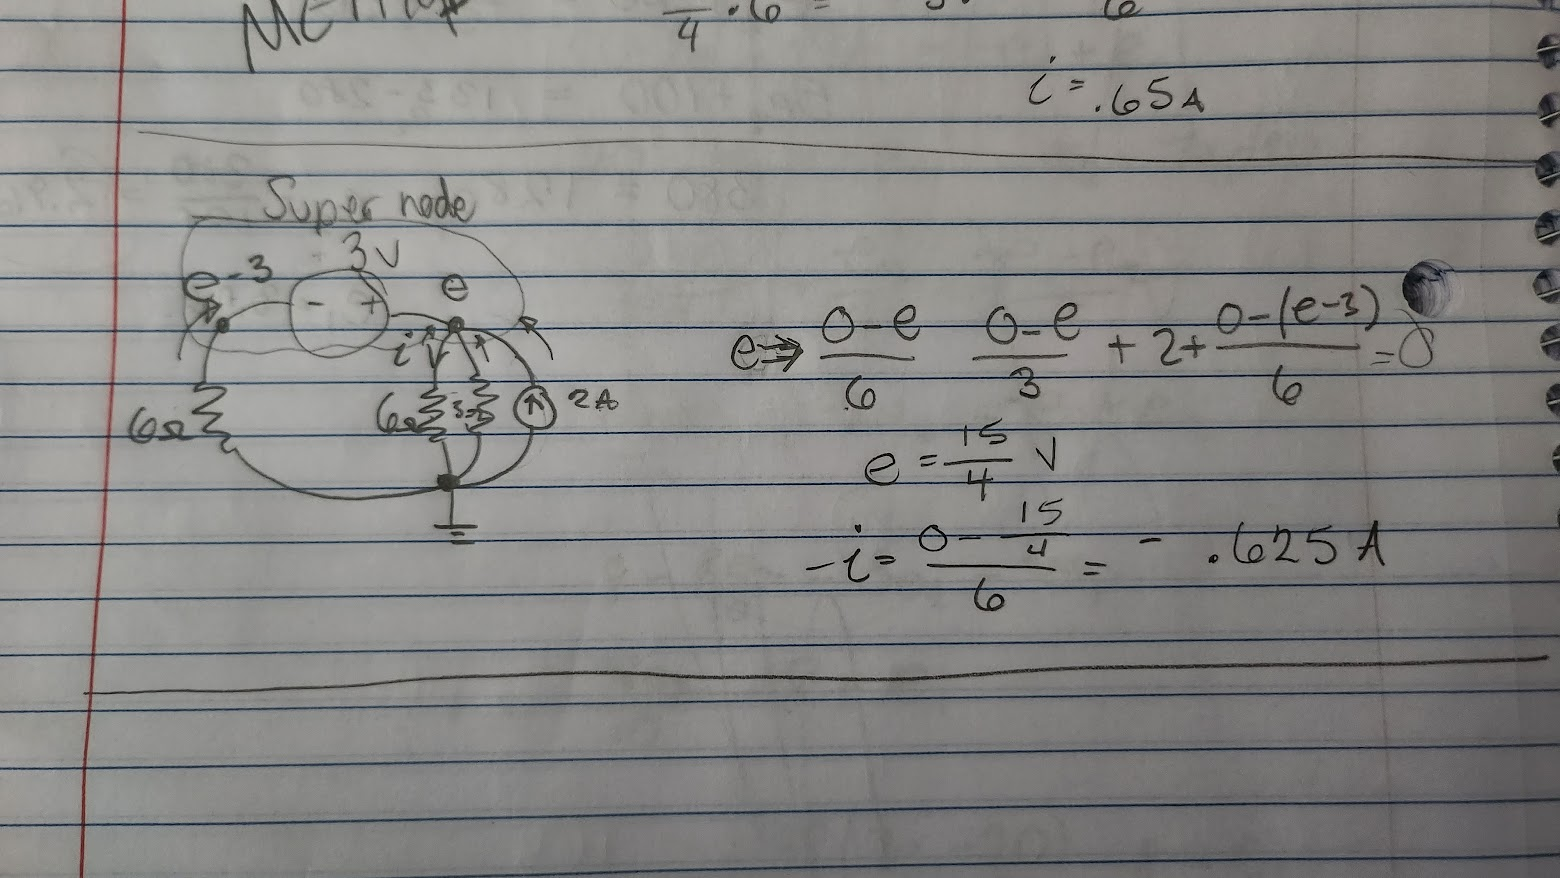 4 · 6 = 6
i = .65A
Super node
3V
e-3 - + e
i
6Ω 6Ω 3Ω 2A
e⇒ 0-e/6 0-e/3 + 2 + 0-(e-3)/6 = 0
e = 15/4 V
-i = 0 - 15/4 / 6 = - .625 A